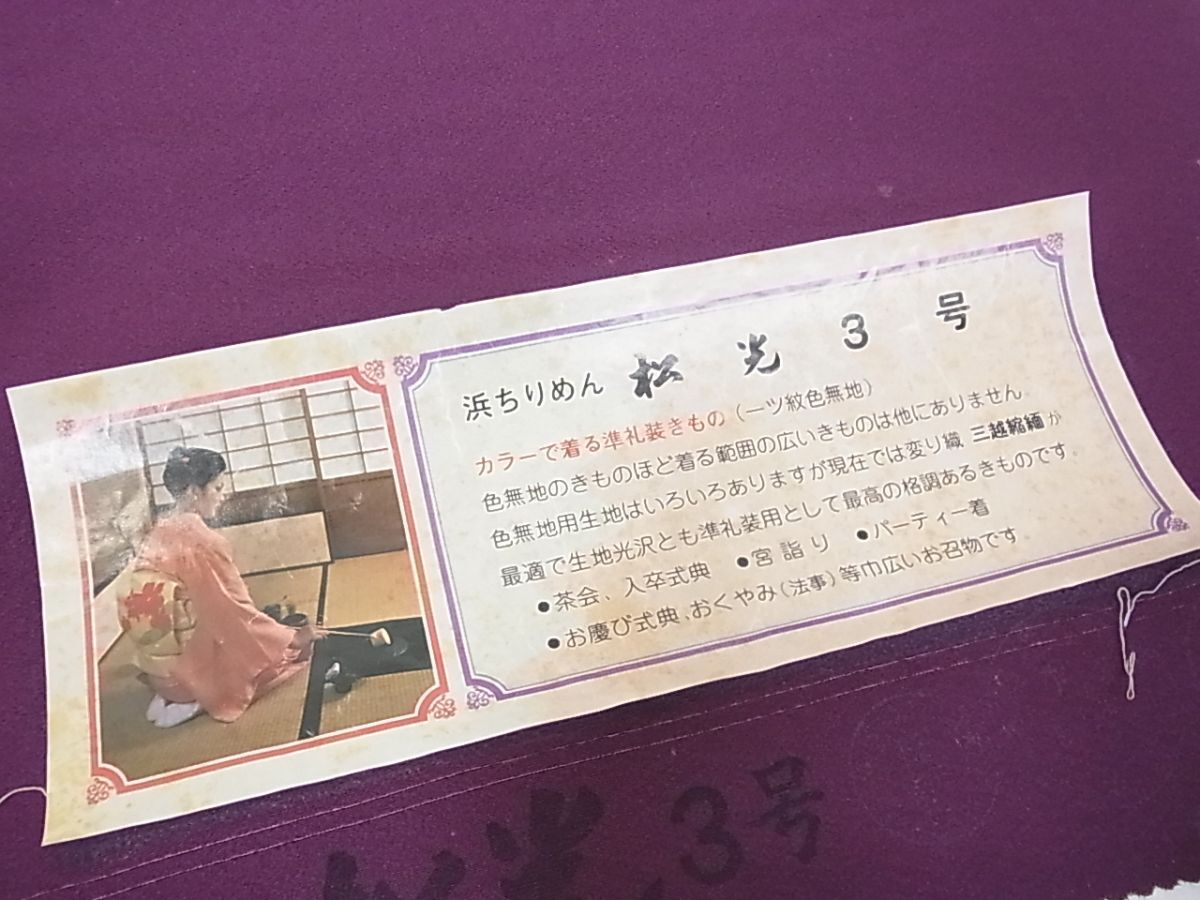 浜ちりめん 松光3号
カラーで着る準礼装きもの(一ツ紋色無地)
色無地のきものほど着る範囲の広いきものは他にありません
色無地用生地はいろいろありますが現在では変り織 三越縮緬が
最適で生地光沢とも準礼装用として最高の格調あるきものです
●茶会、入卒式典 ●宮詣り ●パーティー着
●お慶び式典、おくやみ(法事)等巾広いお召物です
松光3号